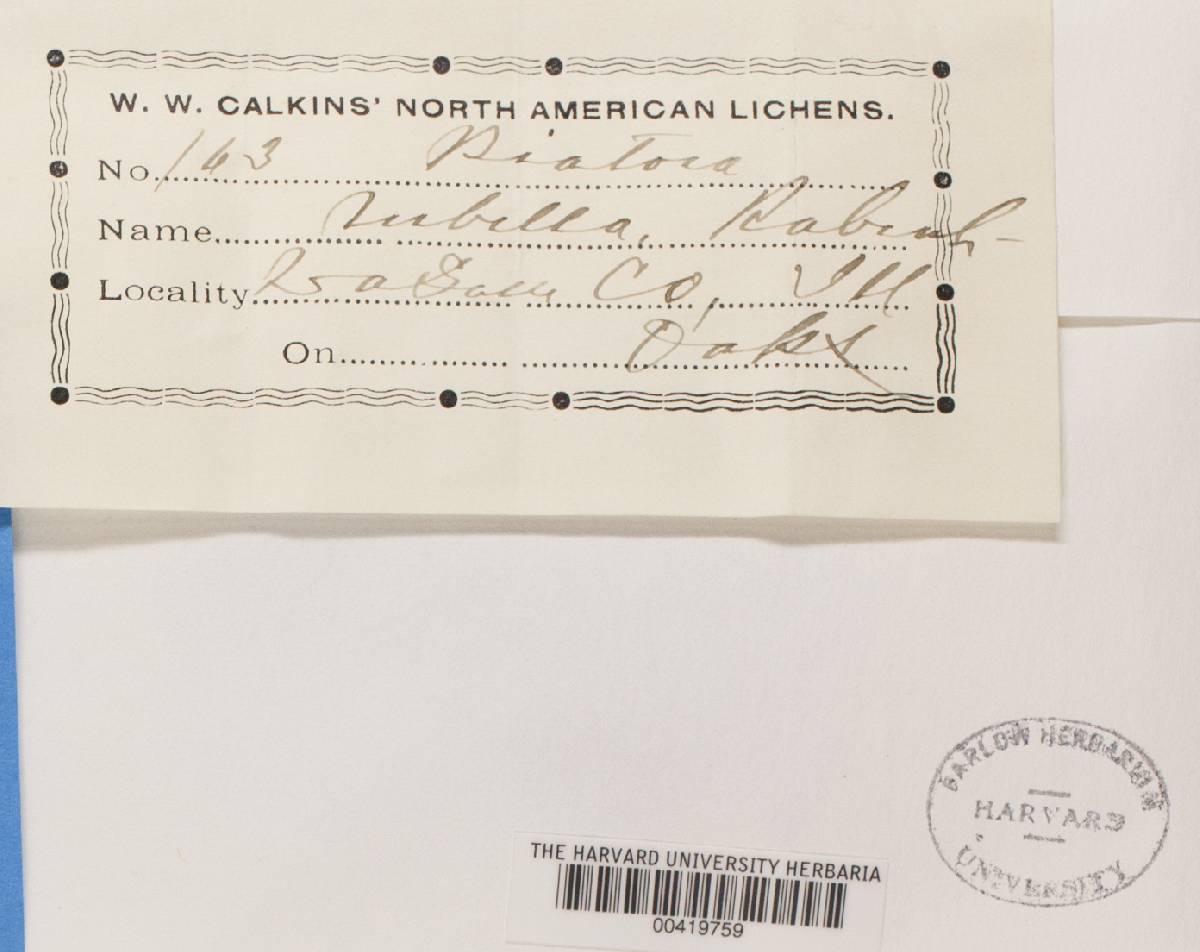 W. W. CALKINS' NORTH AMERICAN LICHENS.
No. 163 Biatora
Name rubella, Rabenh-
Locality LaSalle Co, Ill
On Oaks
FARLOW HERBARIUM
HARVARD
UNIVERSITY
THE HARVARD UNIVERSITY HERBARIA
00419759